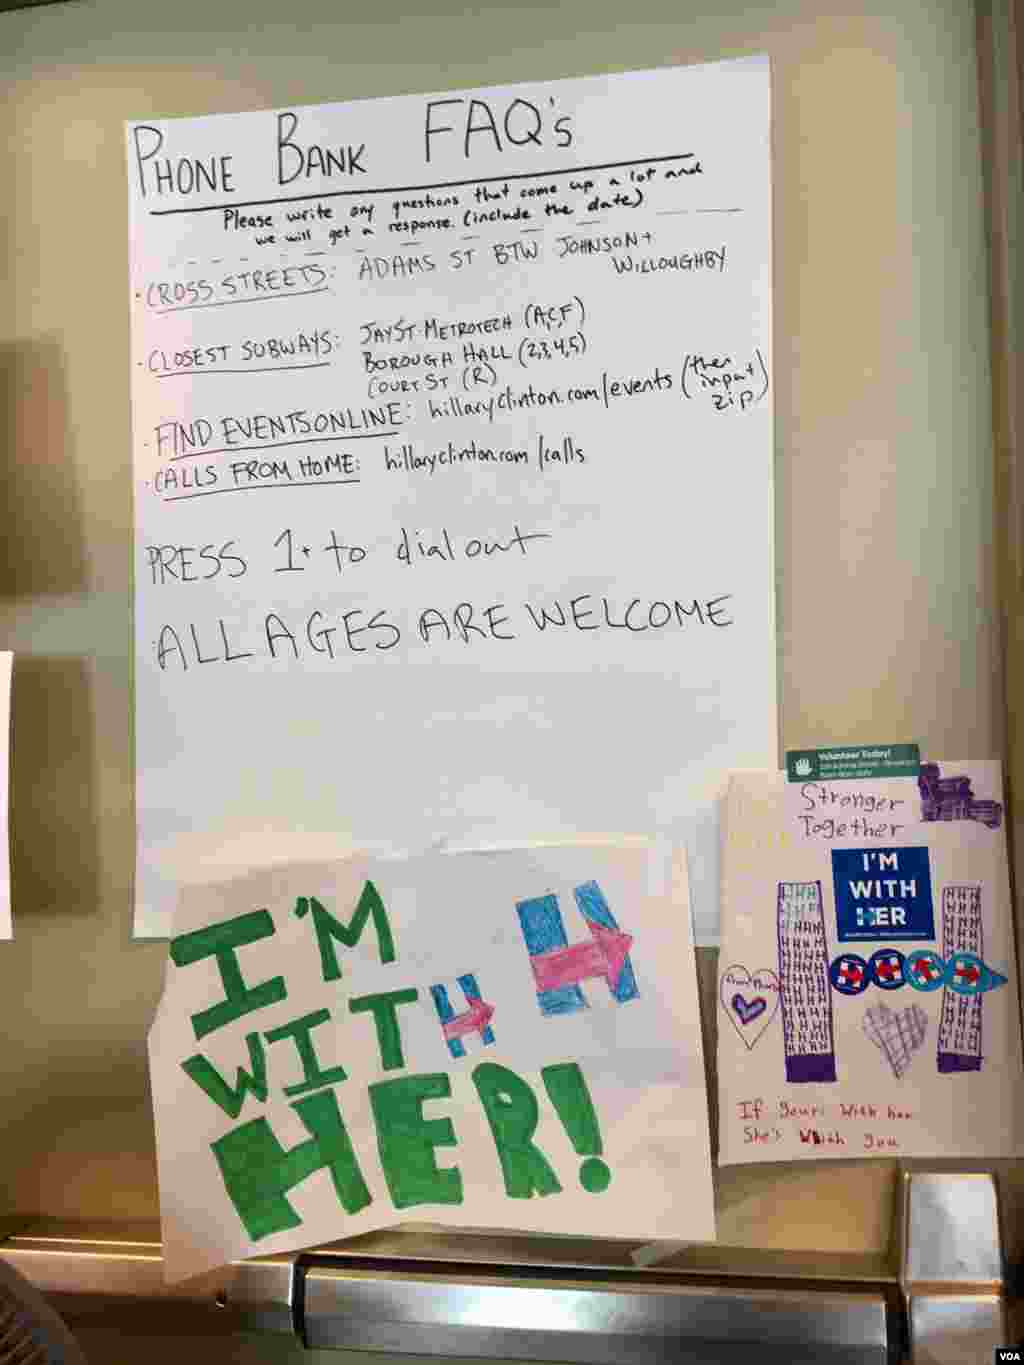 PHONE BANK FAQ's
Please write any questions that come up a lot and
we will get a response. (include the date)
· CROSS STREETS: ADAMS ST BTW JOHNSON +
WILLOUGHBY
· CLOSEST SUBWAYS: JAY ST METROTECH (A,C,F)
BOROUGH HALL (2,3,4,5)
COURT ST (R)
· FIND EVENTS ONLINE: hillaryclinton.com/events (then
input
zip)
· CALLS FROM HOME: hillaryclinton.com/calls
PRESS 1 to dial out
ALL AGES ARE WELCOME
I'M
WITH
HER!
H
Volunteer Today!
Stronger
Together
I'M
WITH
HER
If your with her
She's With you
VOA